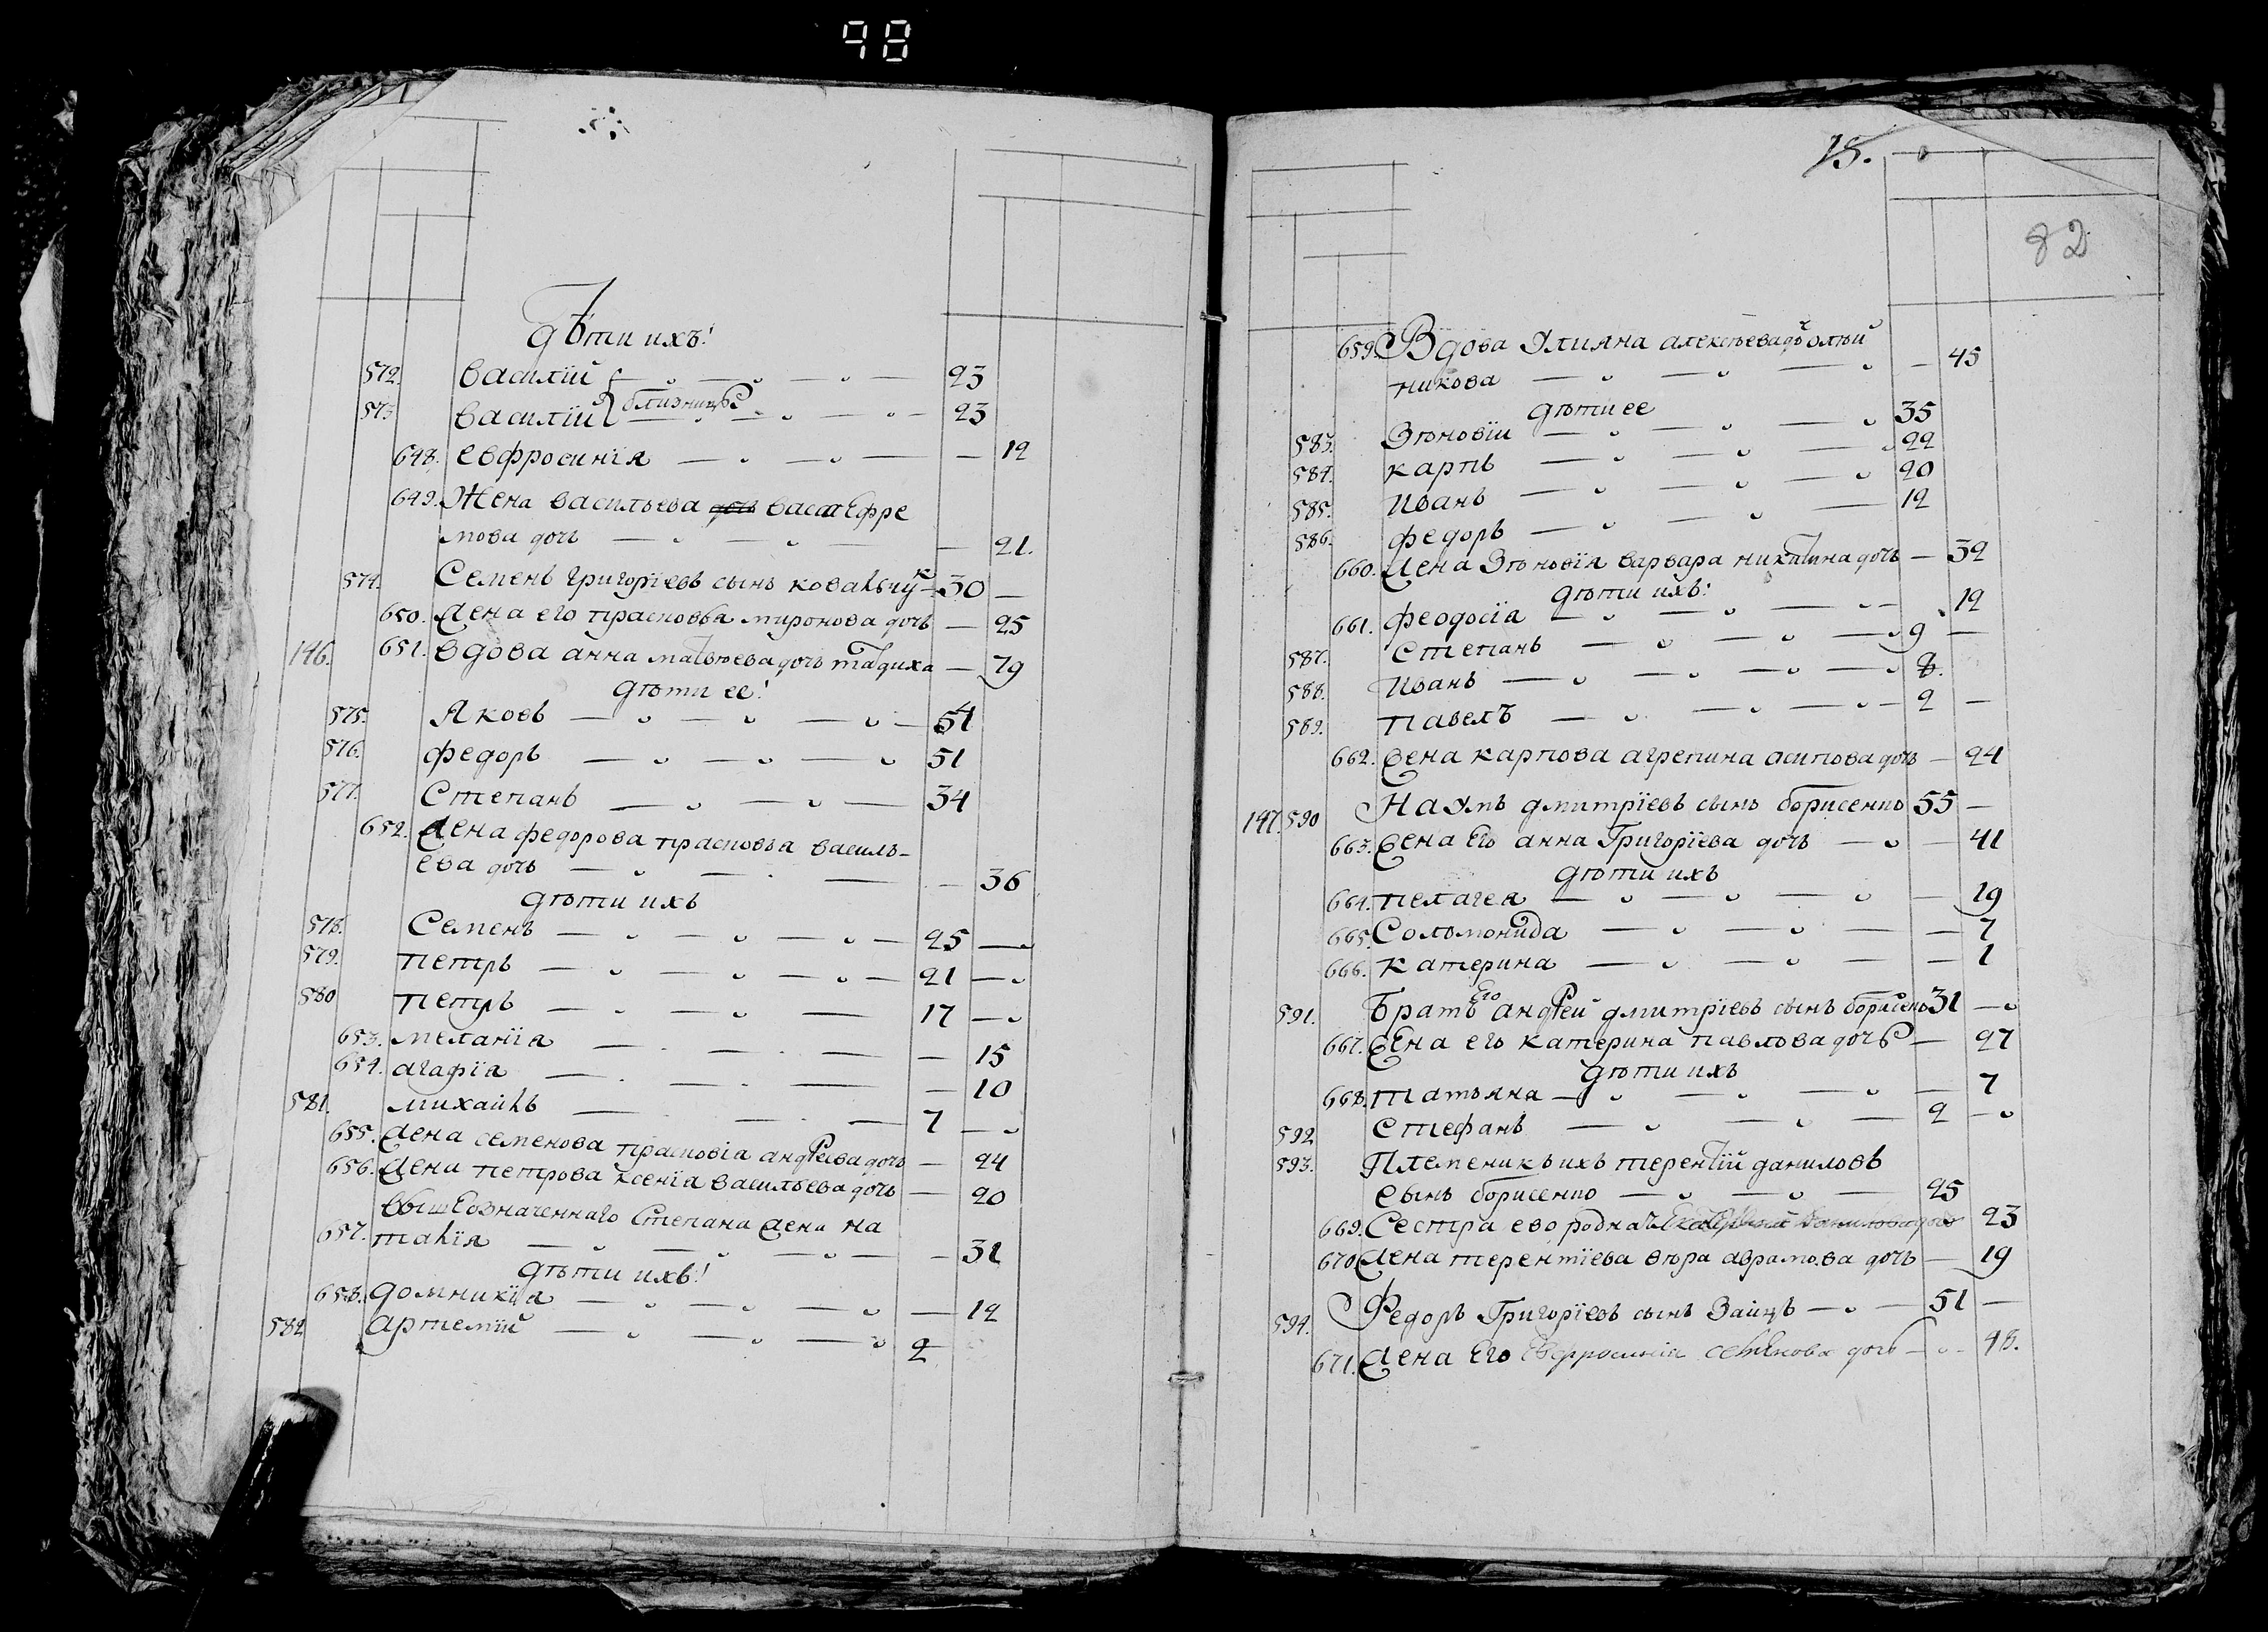 98
Дѣти ихъ!
572. василїй 23
573. василїй близницы 23
648. евфросинїя 12
649. Жена васильева дочь васса Ефре
мова дочь 21.
574. Семенъ григорїевъ сынъ ковальчукъ 30
650. Жена его прасковья миронова дочь 25
146. 651. вдова анна матвѣева дочь 79
дѣти ее!
575. Яковъ 54
576. федоръ 51
577. Степанъ 34
652. Жена федорова прасковья василь-
ева дочь 36
дѣти ихъ
578. Семенъ 25
579. петръ 21
580 петръ 17
653. меланїя 15
654. агафїя 10
581. михаилъ 7
655. Жена семенова прасковїа андреева дочь 24
656. Жена петрова ксенїя васильева дочь 20
вышеозначеннаго Степана жена на
657. талїя 31
дѣти ихъ!
658. домникїя 12
582 артемїй 2
75.
82
659. Вдова Улияна алексѣева дочь олѣй
никова 45
дѣти ее
583. Зѣновїи 35
584. карпъ 22
585. Иванъ 20
586. федоръ 12
660. Жена Зѣновїя варвара никитина дочь 32
дѣти ихъ!
661. феодосїа 12
587. Степанъ 9
588. Иванъ 8.
589. павелъ 2
662. Жена карпова агрепина осипова дочь 24
147. 590 Наумъ дмитрїевъ сынъ борисенко 55
663. Жена Его анна Григорїева дочь 41
дѣти ихъ
664. пелагея 19
665. Соломонида 7
666. катерина 1
591. Братъ Его андрей дмитрїевъ сынъ борисенко 31
667. Жена его катерина павлова дочь 27
дѣти ихъ
668. татьяна 7
592 Стефанъ 2
593. Племеникъ ихъ терентїй даниловъ
сынъ борисенко 25
669. Сестра ево родная Екатерина данилова дочь 23
670 Жена терентїева вѣра аврамова дочь 19
594. Федоръ Григорїевъ сынъ Заицъ 51
671. Жена Его Евфросинїя семенова дочь 48.